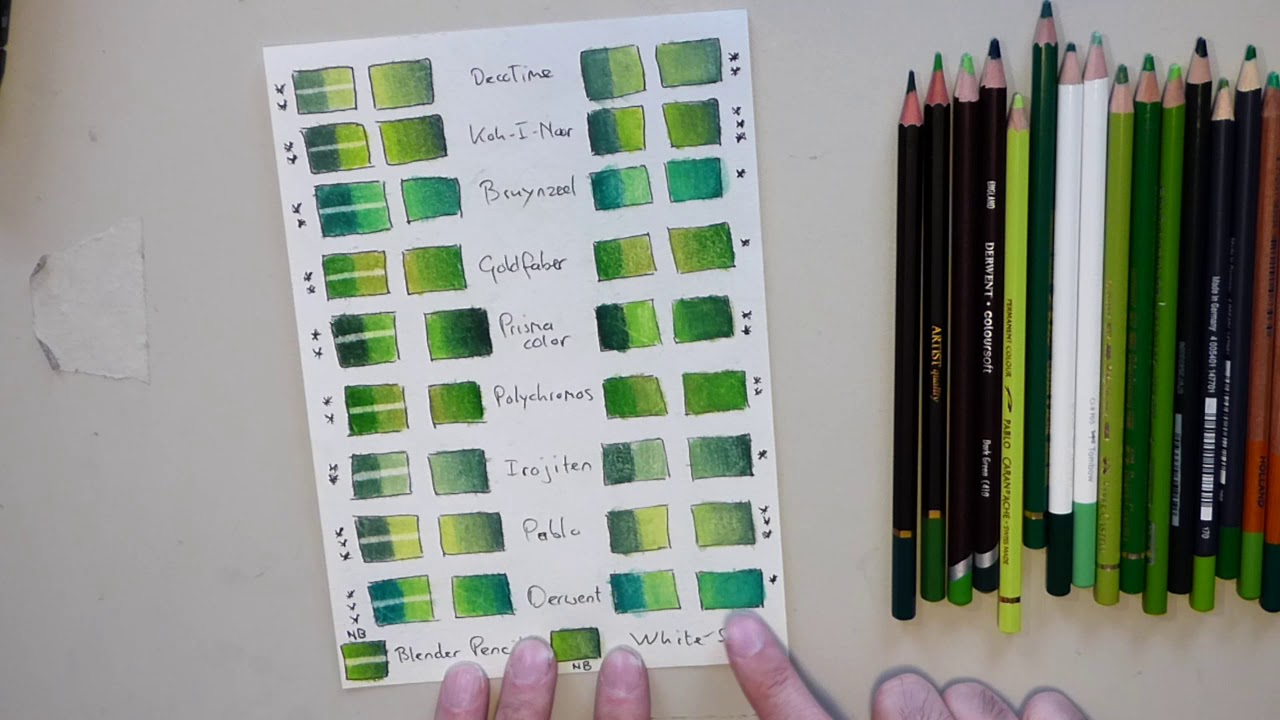 DeccTime
Koh-I-Noor
Bruynzeel
Goldfaber
Prisma
color
Polychromos
Irojiten
Pablo
Derwent
NB
Blender
White-
NB
ARTIST quality
ENGLAND
DERWENT • coloursoft
Dark Green
PERMANENT COLOUR PABLO CARAN D'ACHE · SWISS MADE
Tombow
Made in Germany
4 005401 147701
170
HOLLAND